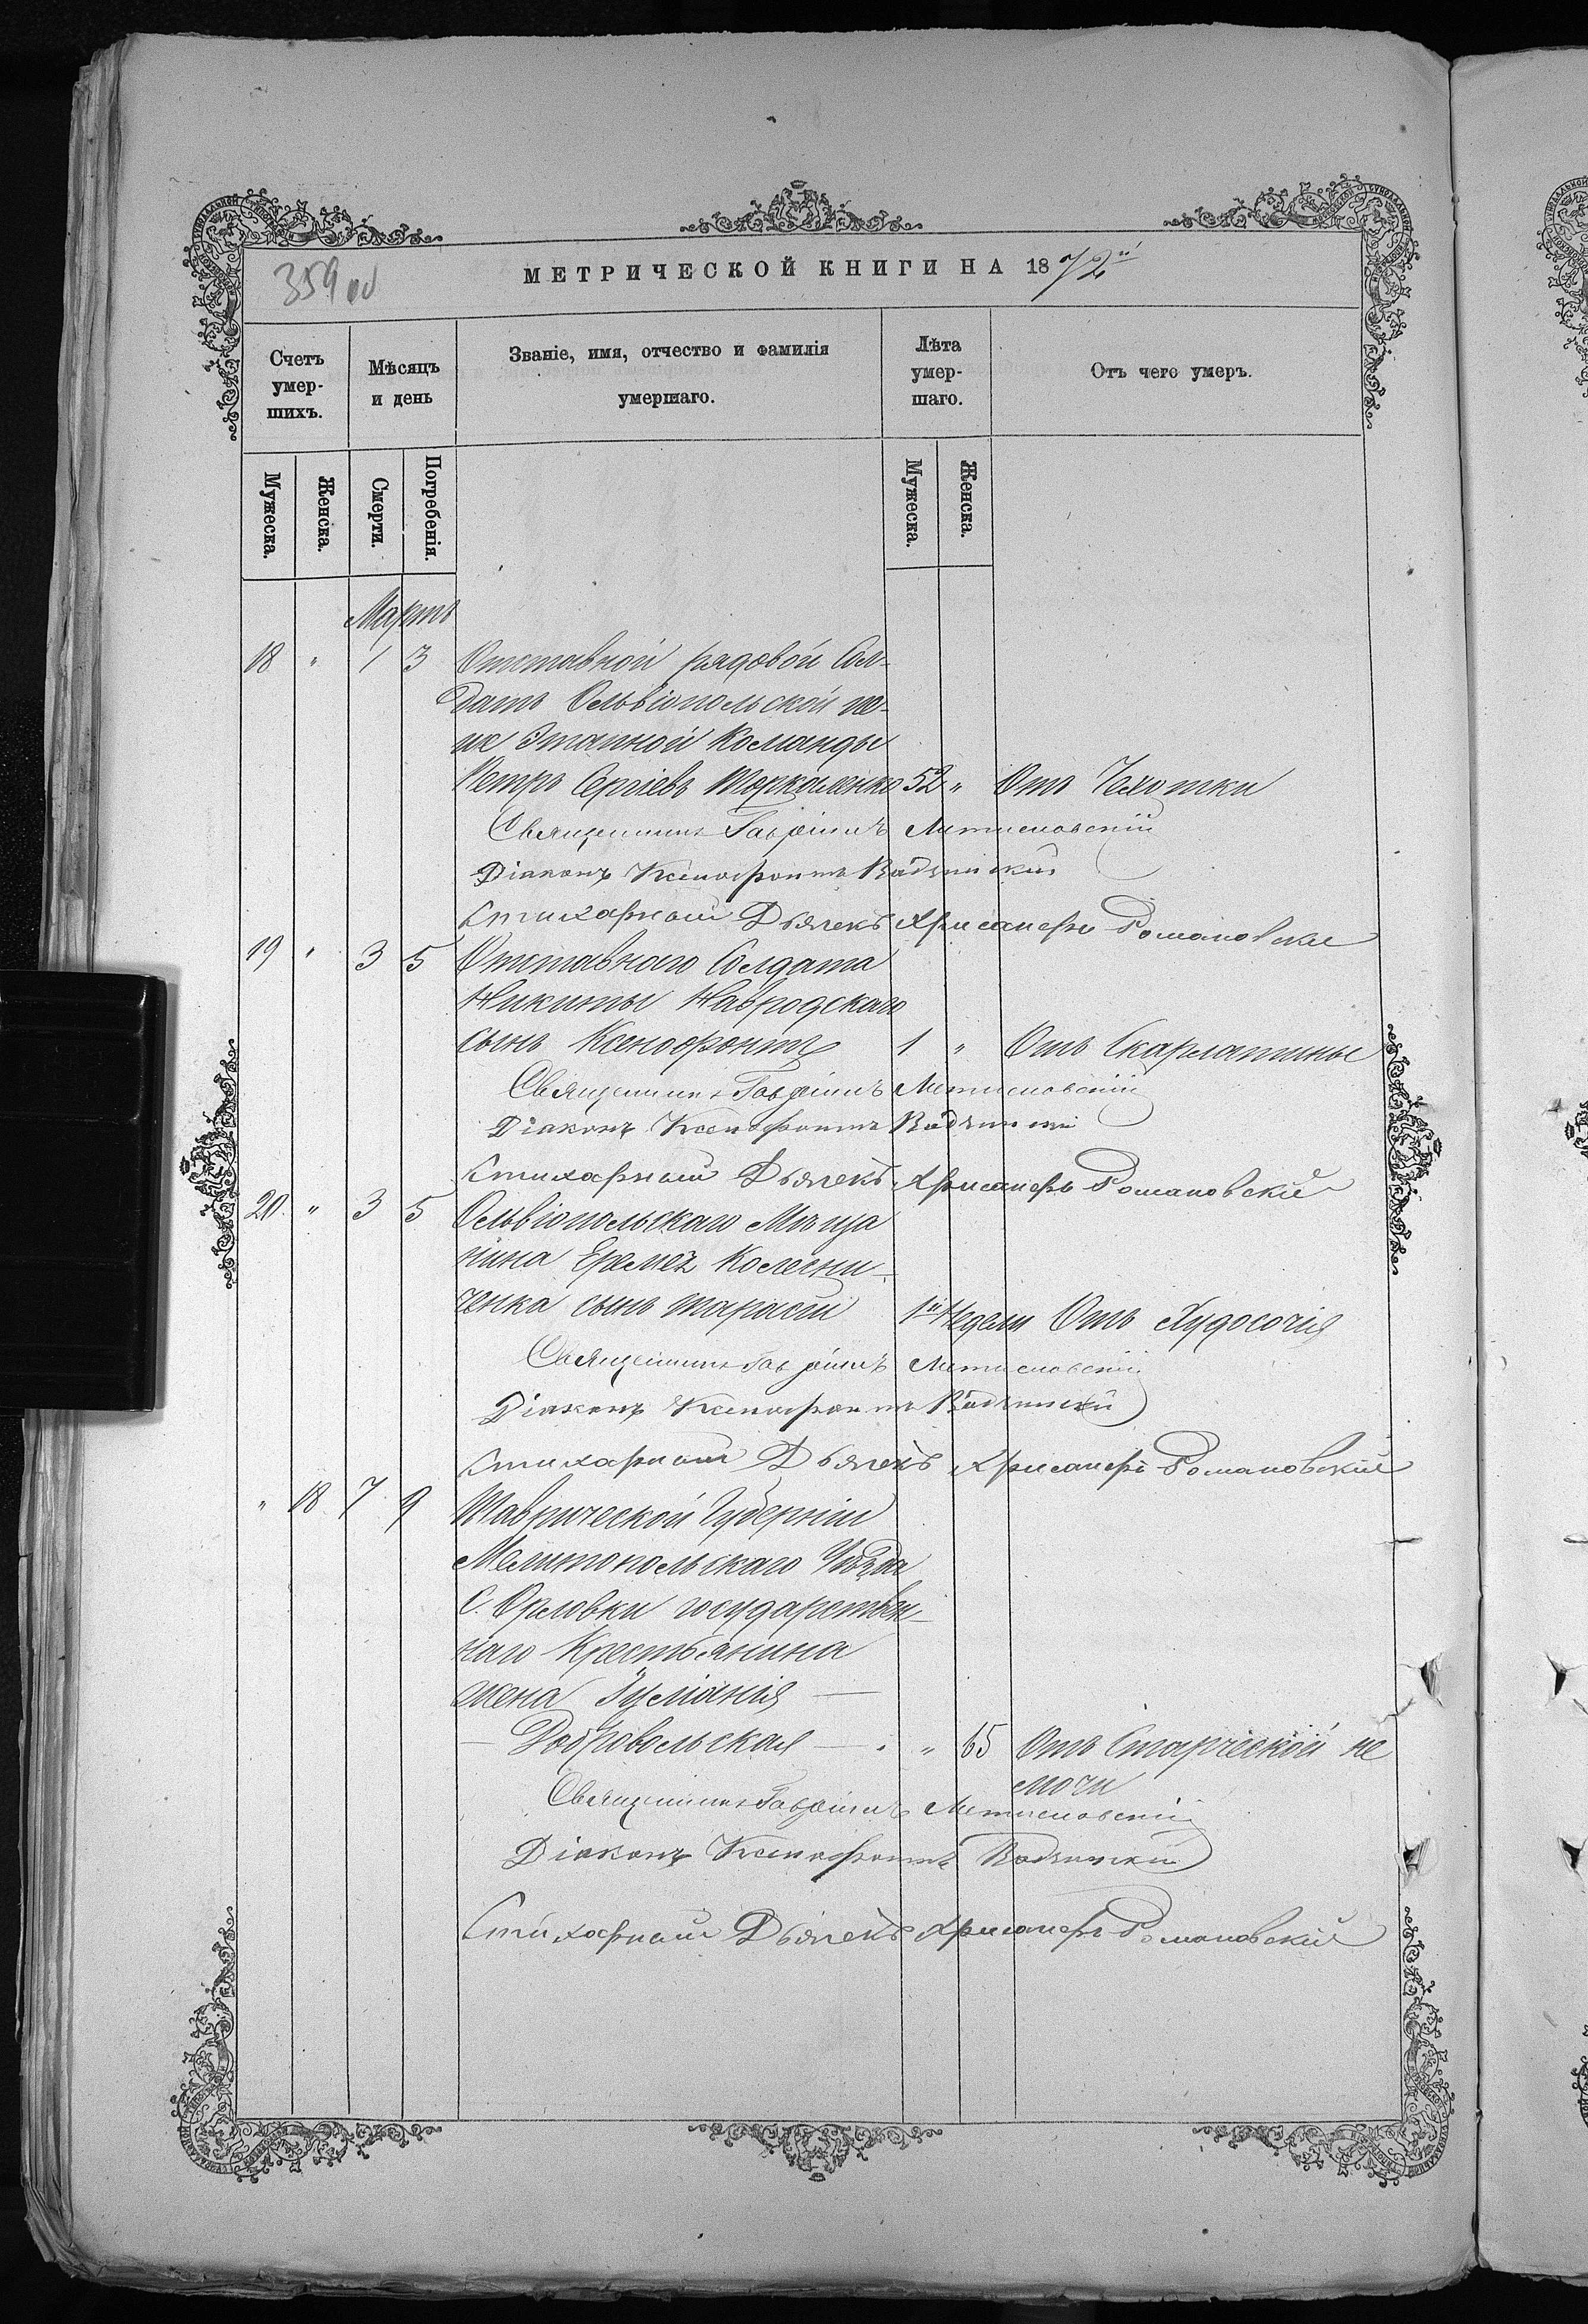 359 об
МЕТРИЧЕСКОЙ КНИГИ НА 1872й
Счетъ умер-шихъ.
Мѣсяцъ и день
Званіе, имя, отчество и фамилія умершаго.
Лѣта умер-шаго.
Отъ чего умеръ.
Мужеска.
Женска.
Смерти.
Погребенія.
Мужеска.
Женска.
Мартъ
18 " 1 3 Отставной рядовой Сол-
датъ Ольвіопольской пе-
ше Этапной Команды
Петръ Сергіевъ 52 " Отъ Чехотки
Священникъ Гавріилъ
Діаконъ Ксенофонтъ
Стихарный Дьячекъ Хрисанфъ Романовскій
19 " 3 5 Отставнаго Солдата
Никиты Навродскаго
сынъ Ксенофонтъ 1 " Отъ Скарлатины
Священникъ Гавріилъ
Діаконъ Ксенофонтъ
Стихарный Дьячекъ Хрисанфъ Романовскій
20 " 3 5 Ольвіопольскаго Мѣща
нина Колесни-
ченка сынъ Тарасій 1й Недели Отъ Худосочія
Священникъ Гавріилъ
Діаконъ Ксенофонтъ
Стихарный Дьячекъ Хрисанфъ Романовскій
" 18 7 9 Таврической Губерніи
Мелитопольскаго Уѣзда
С. Орловки государствен-
наго Крестьянина
жена Іуліанія —
— Добровольская — " 65 Отъ Старческой не
мочи
Священникъ Гавріилъ
Діаконъ Ксенофонтъ
Стихарный Дьячекъ Хрисанфъ Романовскій